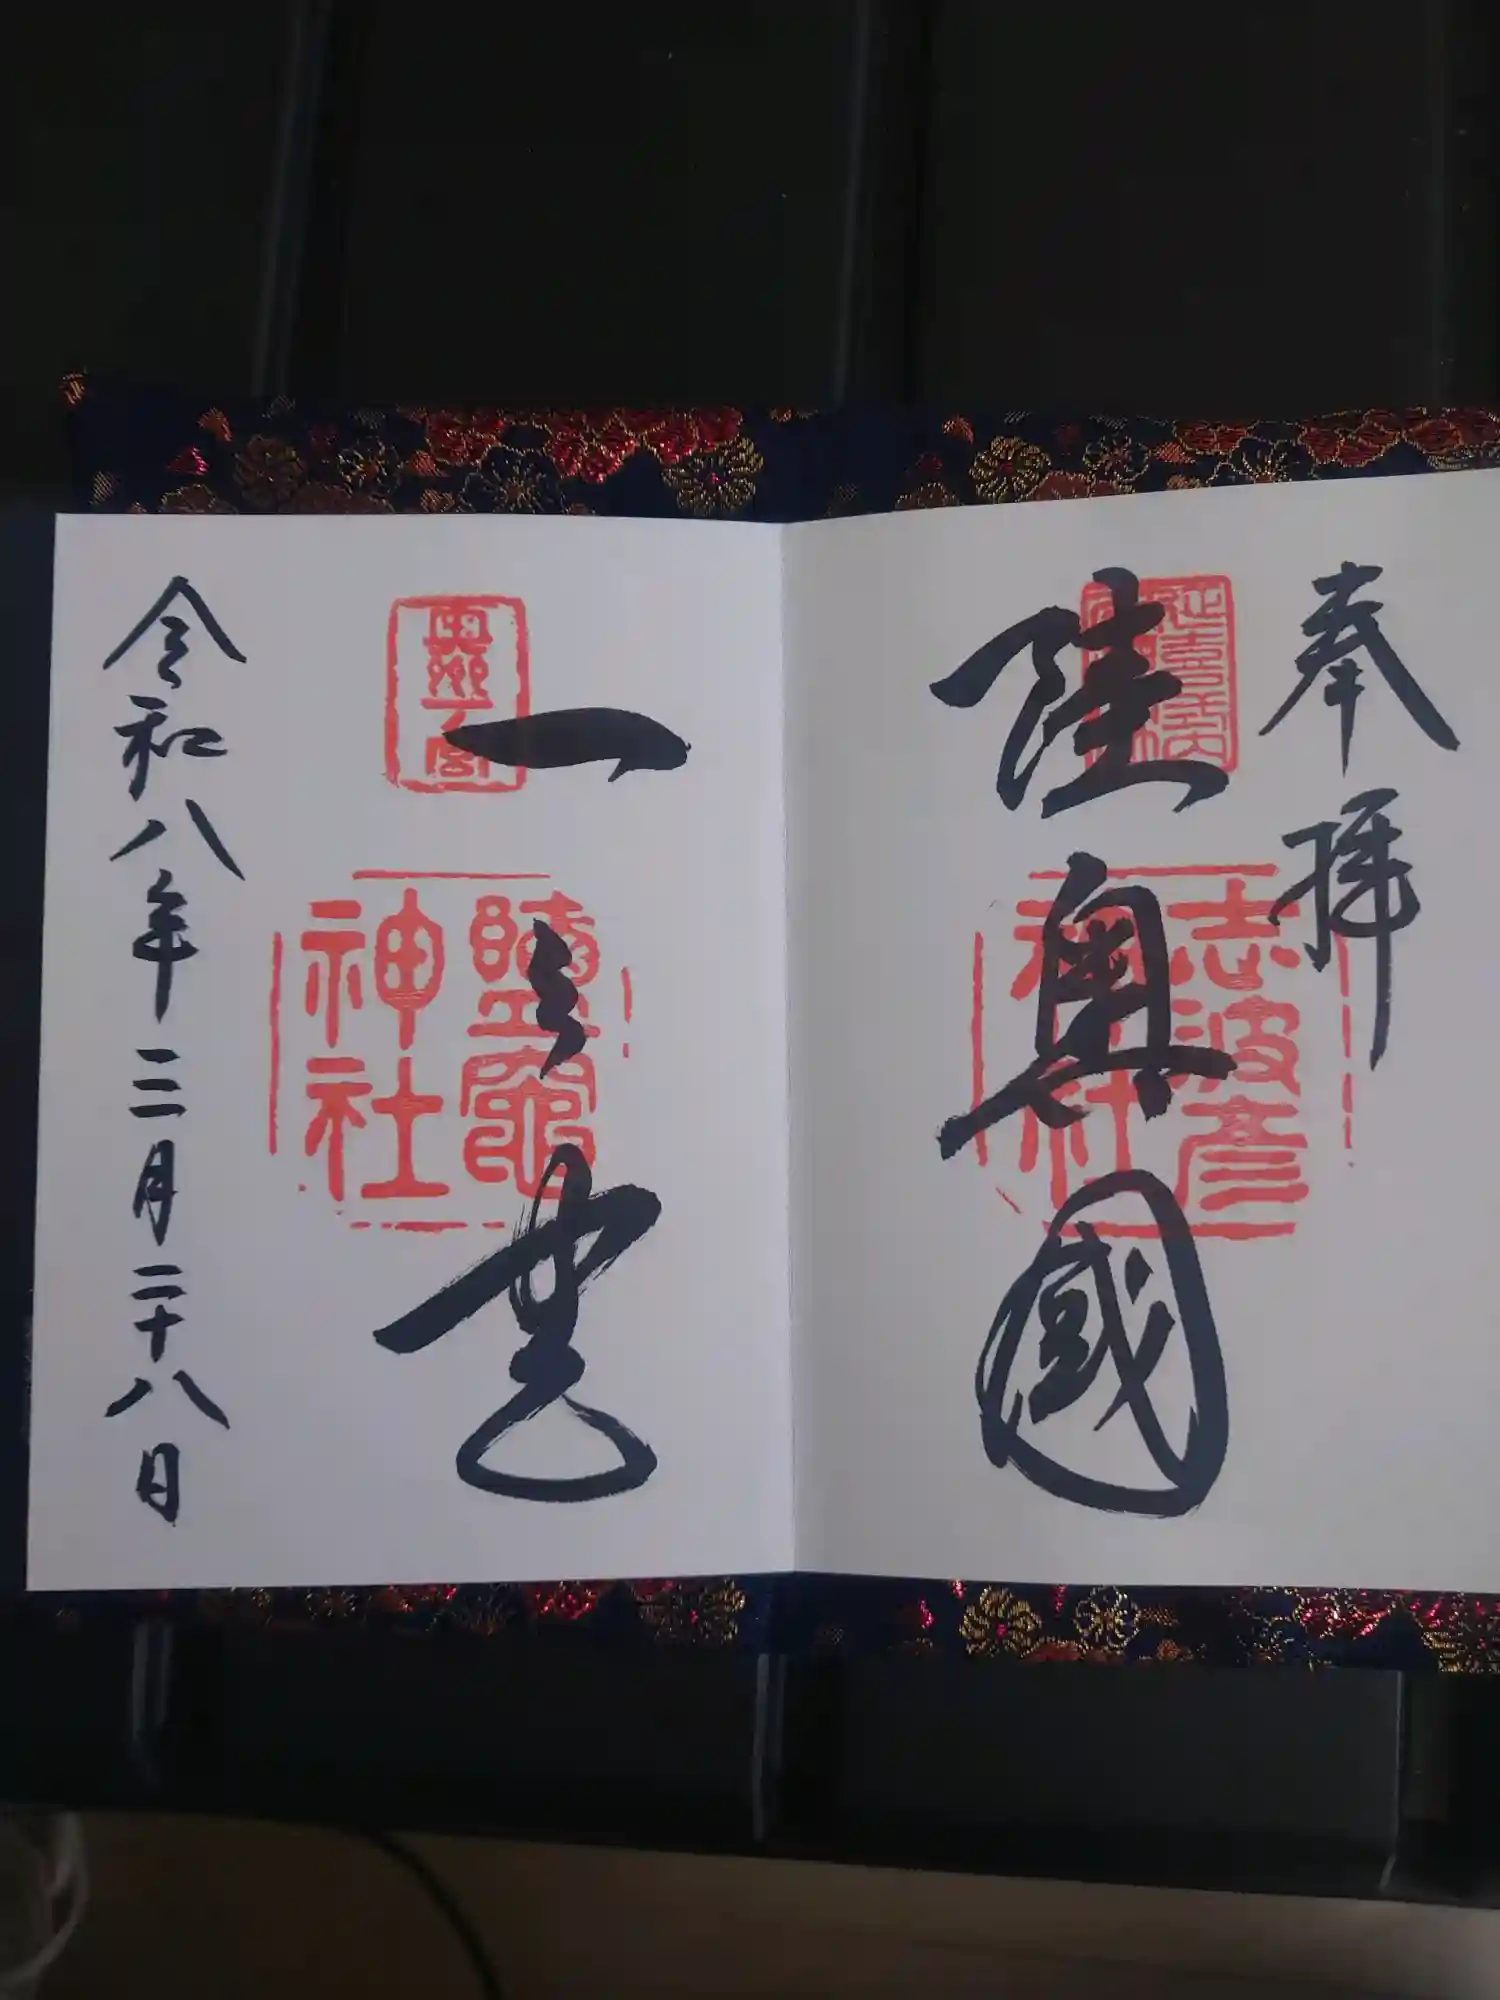 奉拝
延喜式内
陸奥國
志波彦
神社
一之宮
鹽竈
神社
令和八年三月二十八日